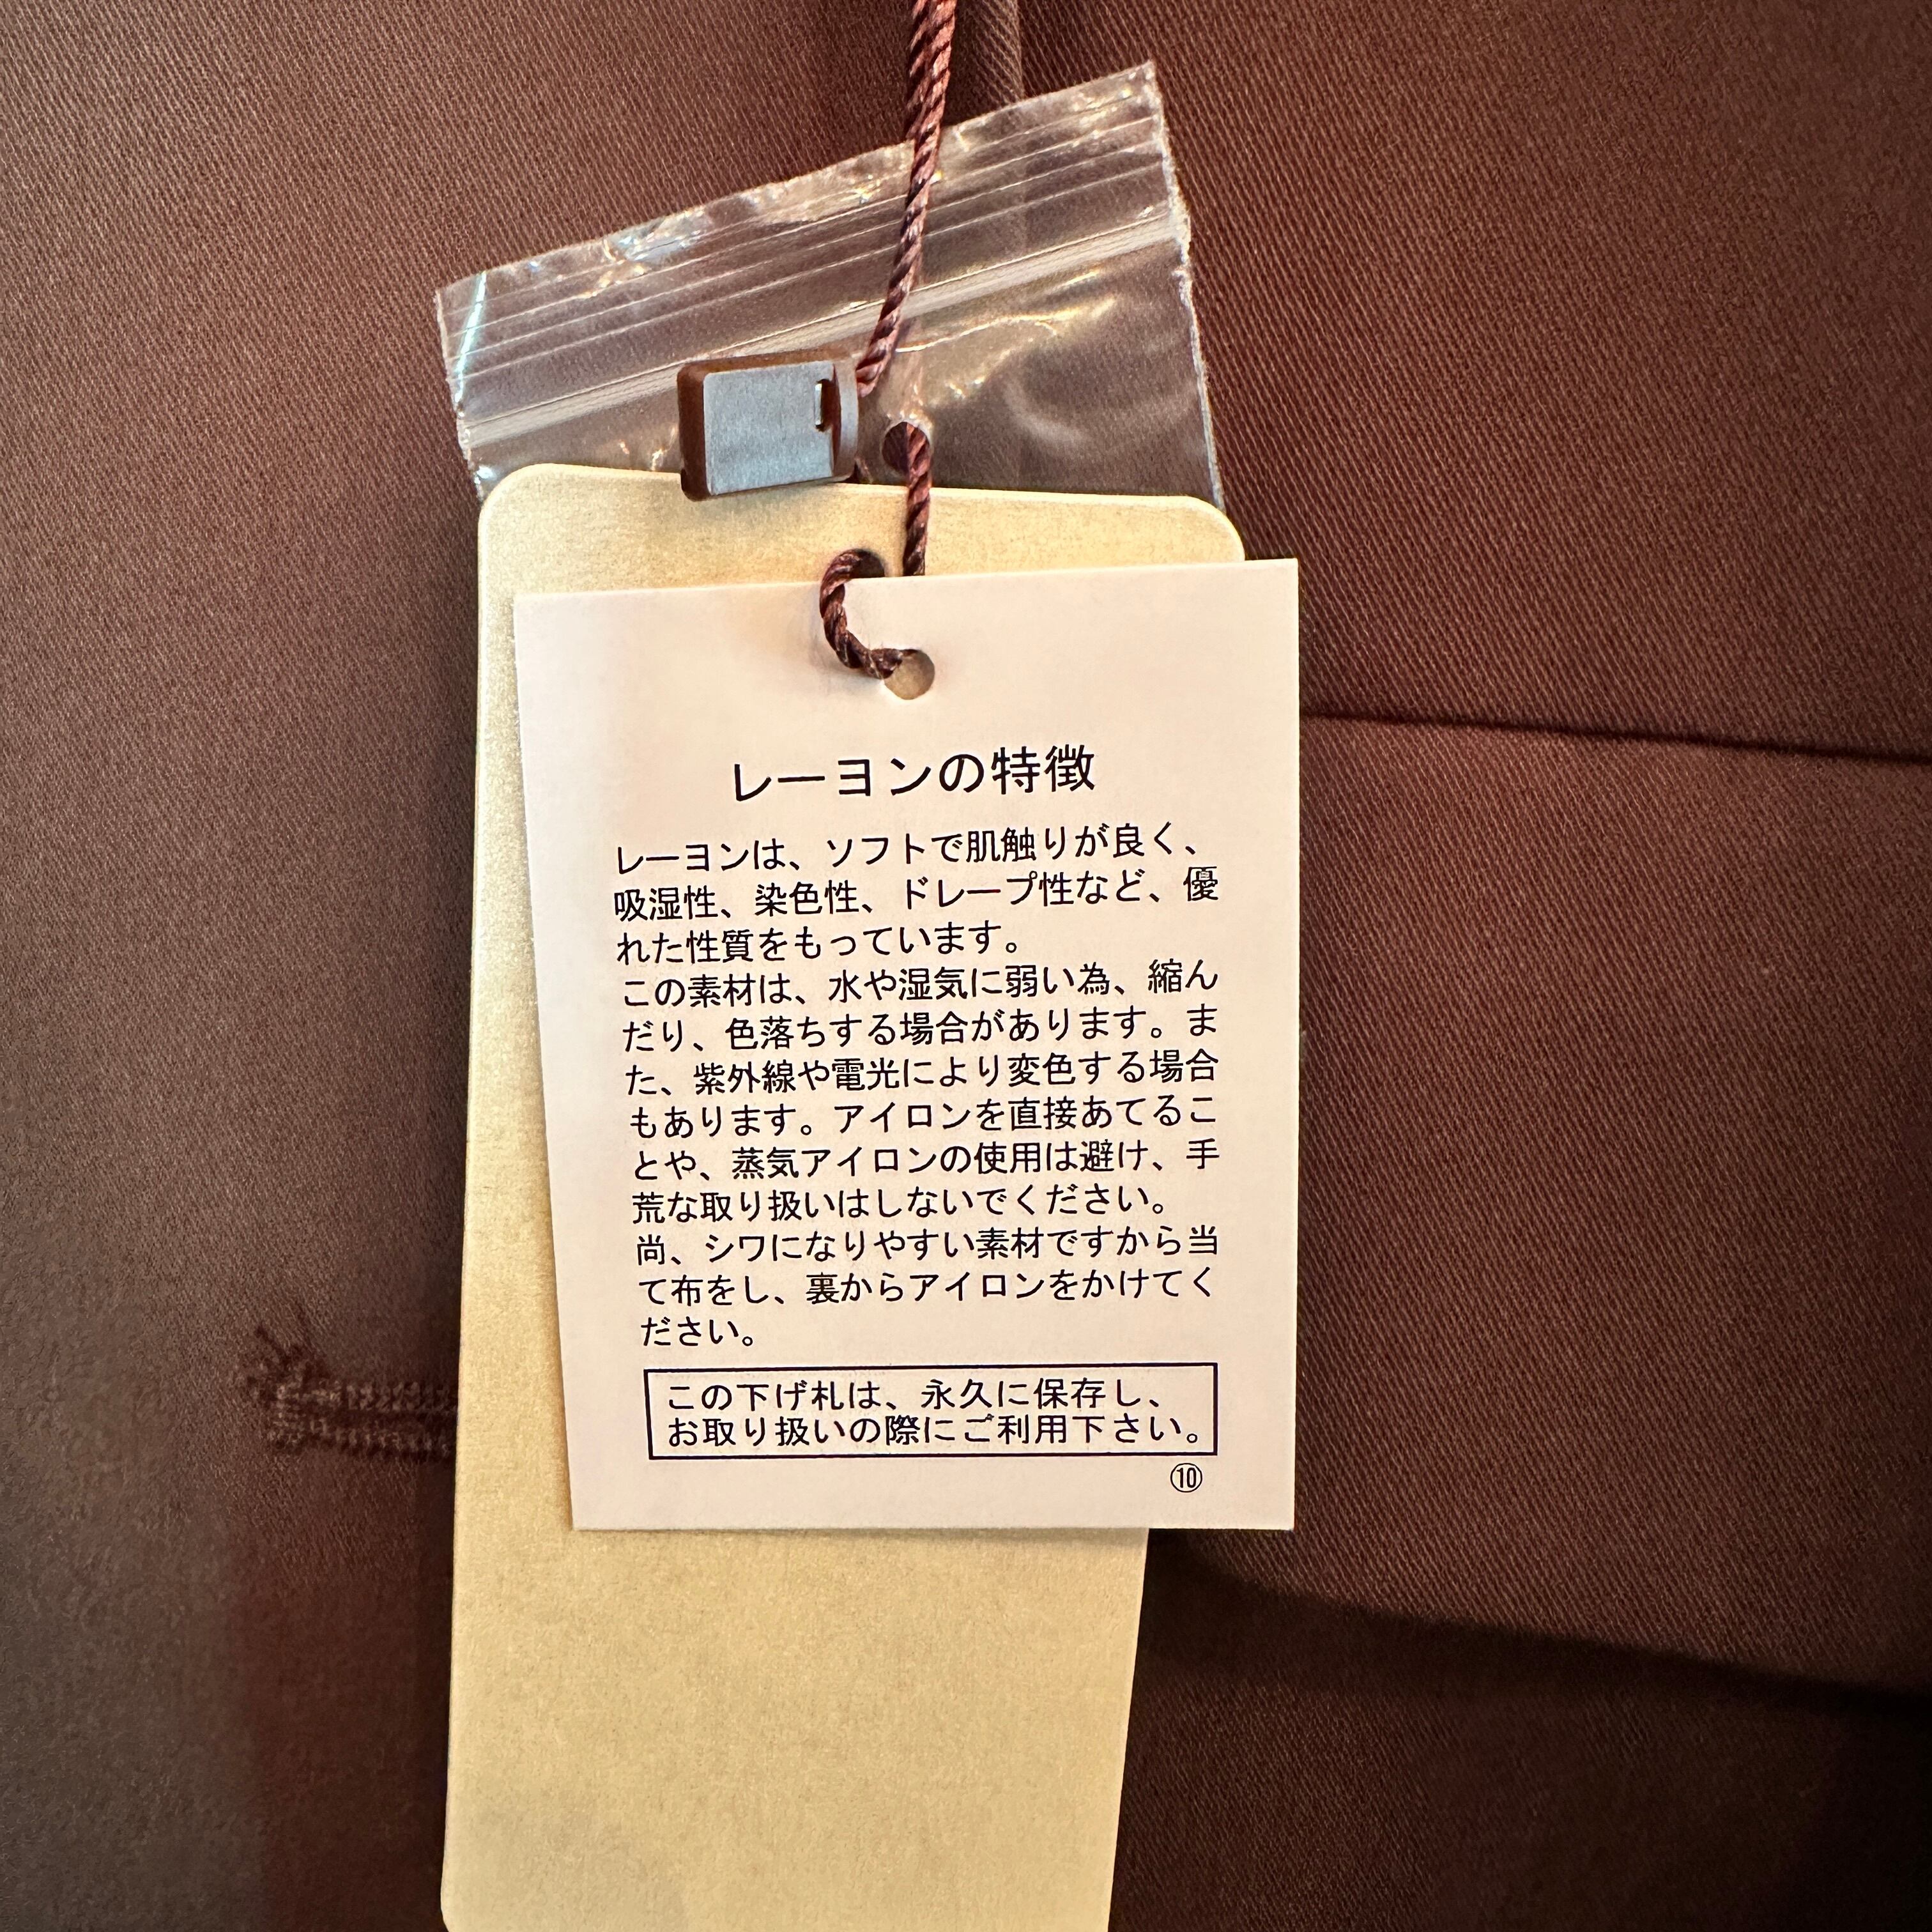 レーヨンの特徴
レーヨンは、ソフトで肌触りが良く、
吸湿性、染色性、ドレープ性など、優
れた性質をもっています。
この素材は、水や湿気に弱い為、縮ん
だり、色落ちする場合があります。ま
た、紫外線や電光により変色する場合
もあります。アイロンを直接あてるこ
とや、蒸気アイロンの使用は避け、手
荒な取り扱いはしないでください。
尚、シワになりやすい素材ですから当
て布をし、裏からアイロンをかけてく
ださい。
この下げ札は、永久に保存し、
お取り扱いの際にご利用下さい。
⑩